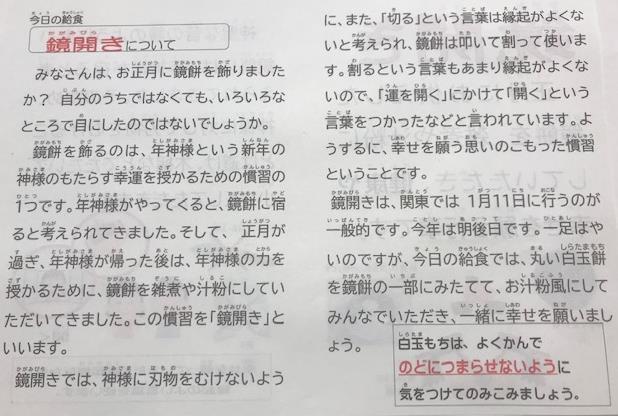 今日の給食
鏡開きについて
みなさんは、お正月に鏡餅を飾りました
か？ 自分のうちではなくても、いろいろな
ところで目にしたのではないでしょうか。
鏡餅を飾るのは、年神様という新年の
神様のもたらす幸運を授かるための慣習の
1つです。年神様がやってくると、鏡餅に宿
ると考えられてきました。そして、 正月が
過ぎ、年神様が帰った後は、年神様の力を
授かるために、鏡餅を雑煮や汁粉にしてい
ただいてきました。この慣習を「鏡開き」と
いいます。
鏡開きでは、神様に刃物をむけないよう
に、また、「切る」という言葉は縁起がよくな
いと考えられ、鏡餅は叩いて割って使いま
す。割るという言葉もあまり縁起がよくな
いので、「運を開く」にかけて「開く」という
言葉をつかったなどと言われています。よ
うするに、幸せを願う思いのこもった慣習
ということです。
鏡開きは、関東では 1月11日に行うのが
一般的です。今年は明後日です。一足はや
いのですが、今日の給食では、丸い白玉餅
を鏡餅の一部にみたてて、お汁粉風にして
みんなでいただき、一緒に幸せを願いまし
ょう。
白玉もちは、よくかんで
のどにつまらせないように
気をつけてのみこみましょう。